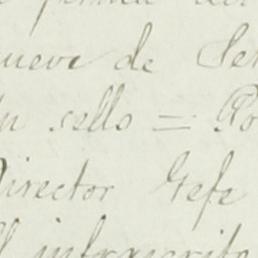 nueve de Se
un sello = Po
Director Gefe
El infrascrito